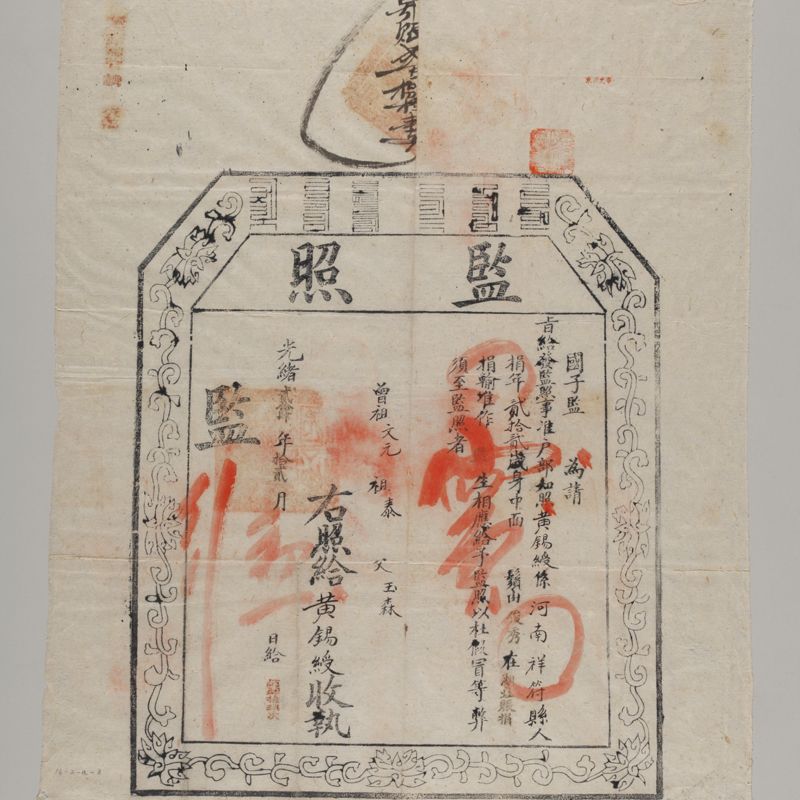 監照
國子監 為請
旨給發監照事准戶部知照黃錫綬係河南祥符縣人
捐年貳拾貳歲身中面 鬚由俊秀在
捐輸准作 生相應給予監照以杜假冒等弊
須至監照者
曾祖文元 祖泰 父玉森
右照給黃錫綬收執
光緒貳 年拾貳月 日給
監